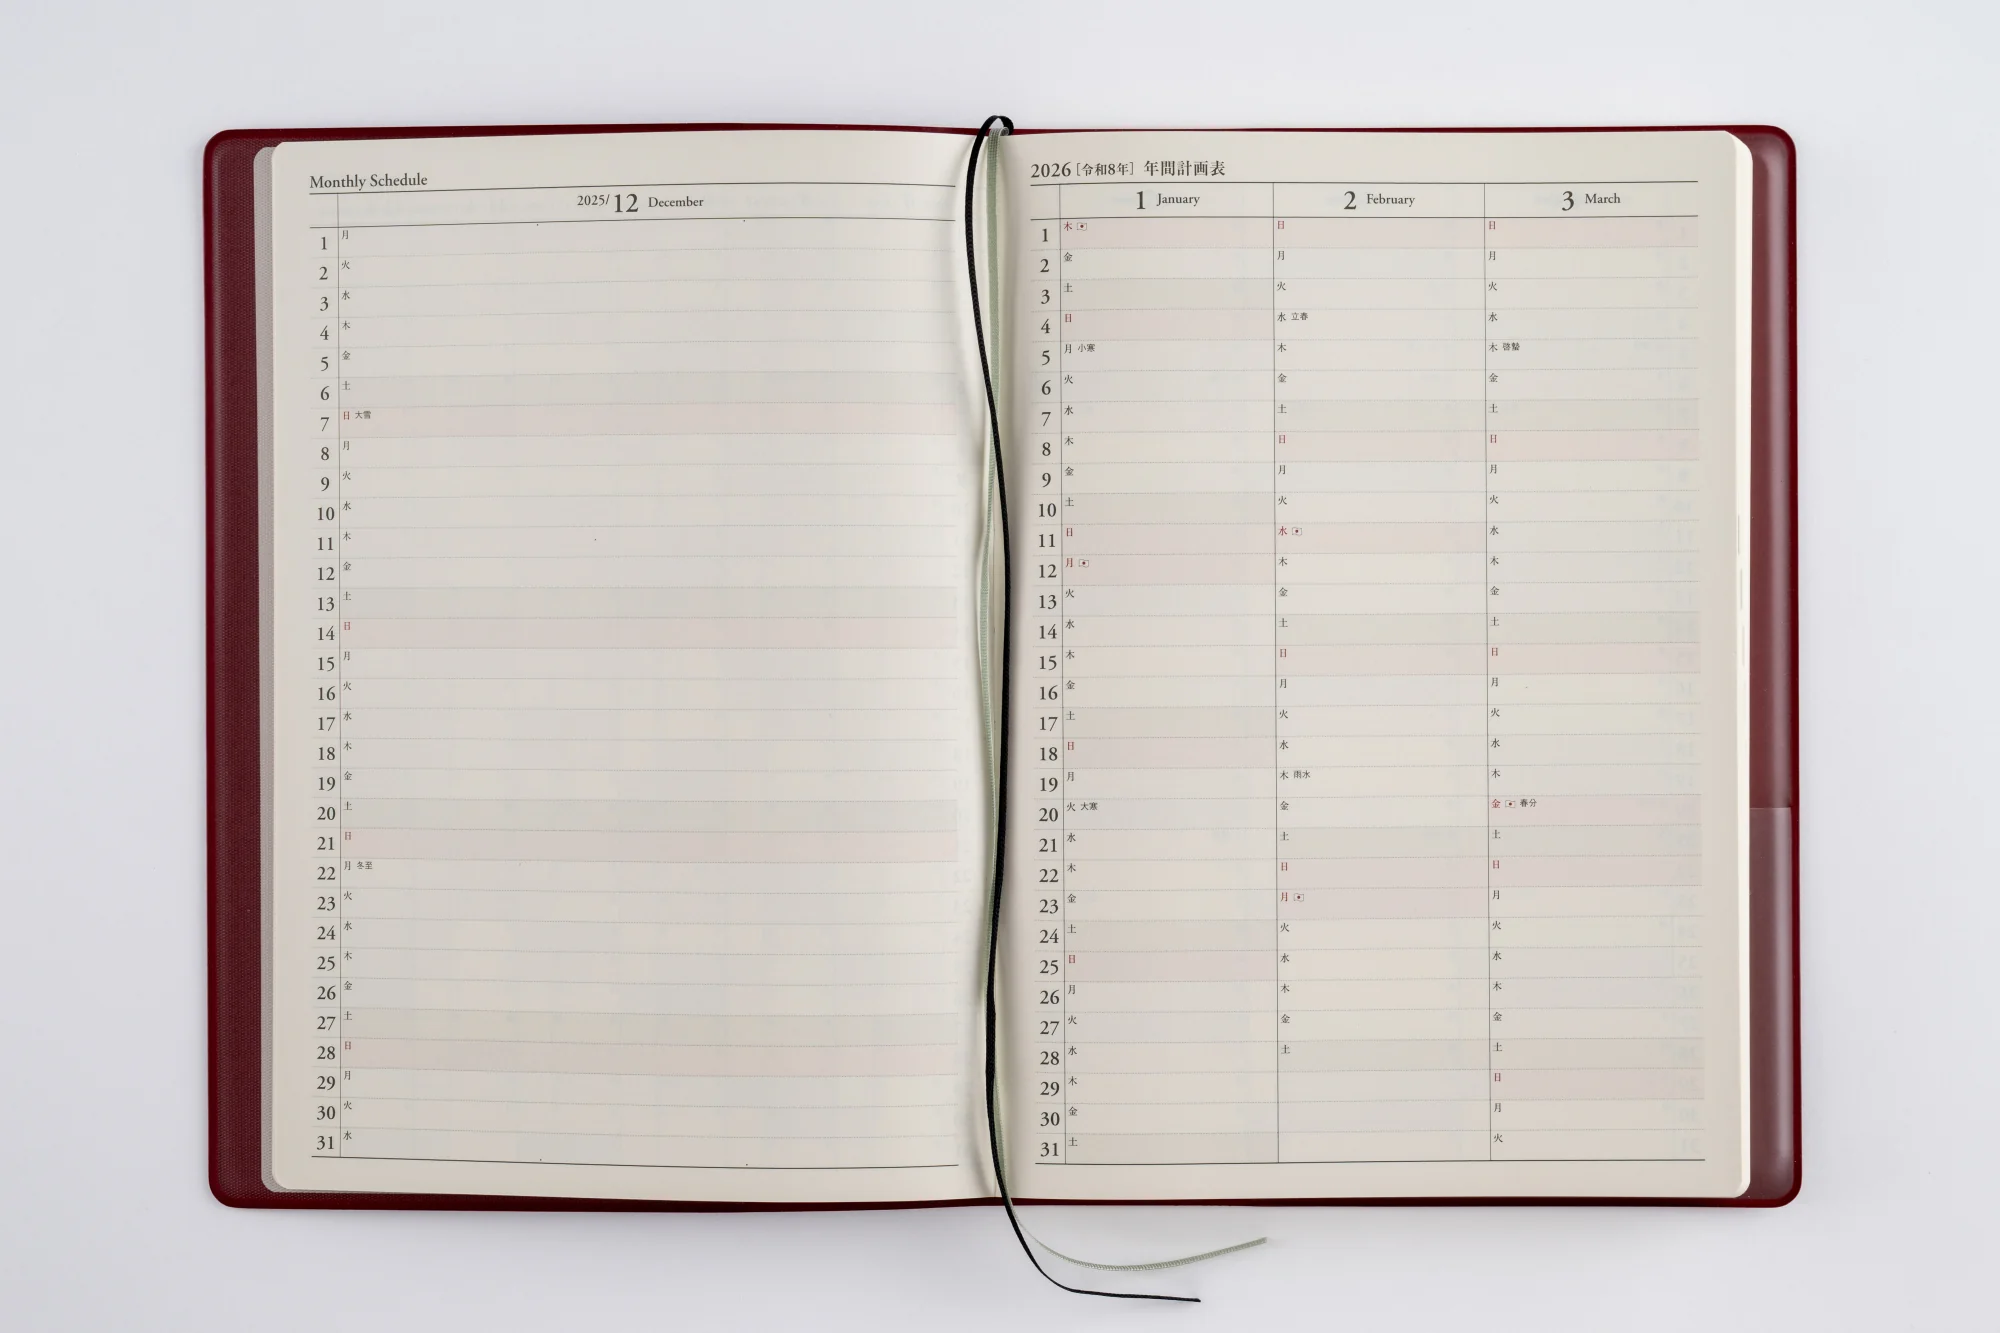 Monthly Schedule
2025/12 December
1 月
2 火
3 水
4 木
5 金
6 土
7 日 大雪
8 月
9 火
10 水
11 木
12 金
13 土
14 日
15 月
16 火
17 水
18 木
19 金
20 土
21 日
22 月 冬至
23 火
24 水
25 木
26 金
27 土
28 日
29 月
30 火
31 水
2026［令和8年］ 年間計画表
1 January 2 February 3 March
1 木 日 日
2 金 月 月
3 土 火 火
4 日 水 立春 水
5 月 小寒 木 木 啓蟄
6 火 金 金
7 水 土 土
8 木 日 日
9 金 月 月
10 土 火 火
11 日 水 水
12 月 木 木
13 火 金 金
14 水 土 土
15 木 日 日
16 金 月 月
17 土 火 火
18 日 水 水
19 月 木 雨水 木
20 火 大寒 金 金 春分
21 水 土 土
22 木 日 日
23 金 月 月
24 土 火 火
25 日 水 水
26 月 木 木
27 火 金 金
28 水 土 土
29 木 日
30 金 月
31 土 火